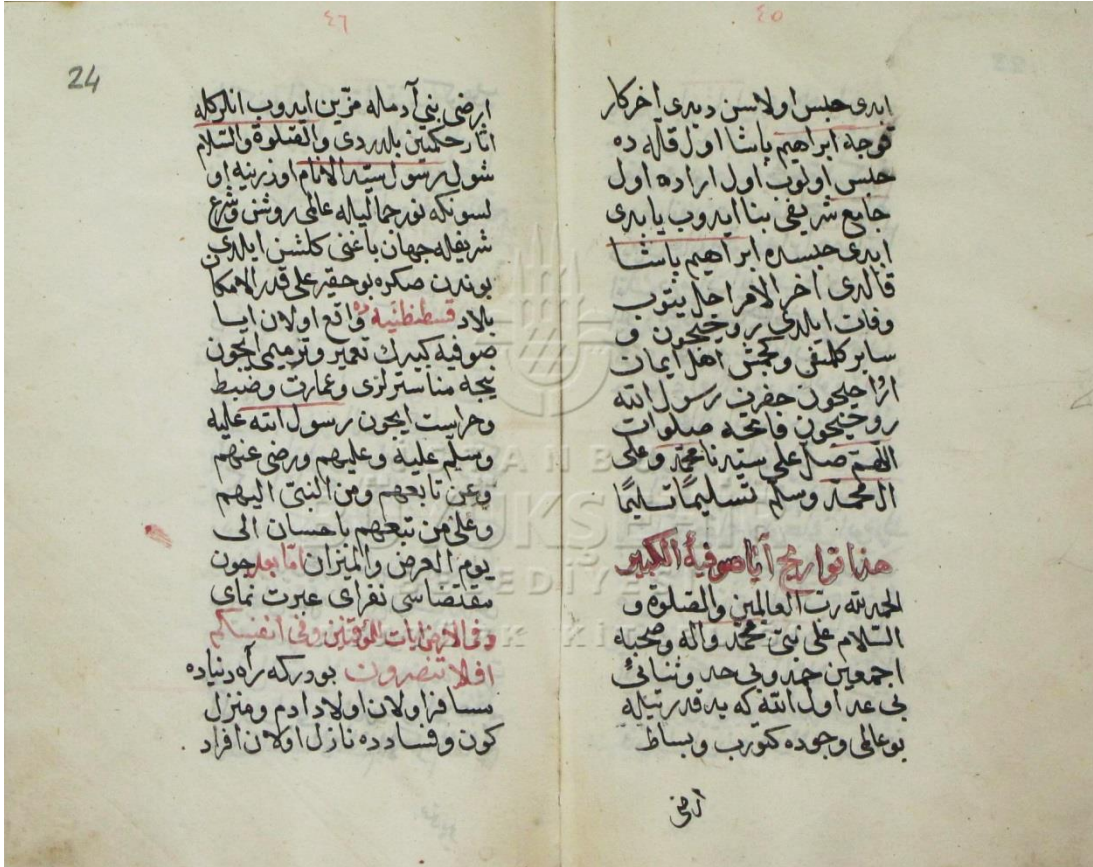 ٤٥
ايدى حبس اولاسن ديدى اخركار
قوجه ابراهيم پاشا اول قلعه ده
حبس اولوب اول اراده اول
جامع شريفى بنا ايدوب يابدى
ايدى حبسده ابراهيم پاشا
قالدى اخر الامر اجل يتوب
وفات ايلدى روحيچون و
ساير كلمش وكچمش اهل ايمان
ارواحيچون حضرت رسول الله
روحيچون فاتحه صلوات
اللهم صل على سيدنا محمد وعلى
ال محمد وسلم تسليمًا تسليمًا
هذا تواريخ أيا صوفية الكبير
الحمد لله رب العالمين والصلوة و
السلام على نبى محمد واله وصحبه
اجمعين حمد بى حد وثنائ
بى عد اول الله كه يد قدرتيله
بو عالمى وجوده كتورب وبساط
ارضى
٤٦
24
ارضى بنى آدمله مزين ايدوب انلركله
اثار حكمتين بلدردى والصلوة والسلام
شول رسول سيد الانام اوزرينه او
لسونكه نور جماليله عالمى روشن وشرع
شريفله جهان باغنى كلشن ايلدى
بوندن صكره بو حقير على قدر الامكان
بلاد قسطنطنيه ده واقع اولان ايا
صوفيه كبيرك تعمير وترميمى ايچون
نيجه مناسترلرى وعمارت وضبط
وحراست ايچون رسول الله عليه
وسلم عليه وعليهم ورضى عنهم
وعن تابعهم ومن النبى اليهم
وعلى من تبعهم باحسان الى
يوم العرض والميزان اما بعد چون
مقتضاسى نفراى عبرت نماى
وفى الارض ايات للموقنين وفى انفسكم
افلا تبصرون بودركه راه دنياده
مسافر اولان اولاد ادم ومنزل
كون وفسادده نازل اولان افراد